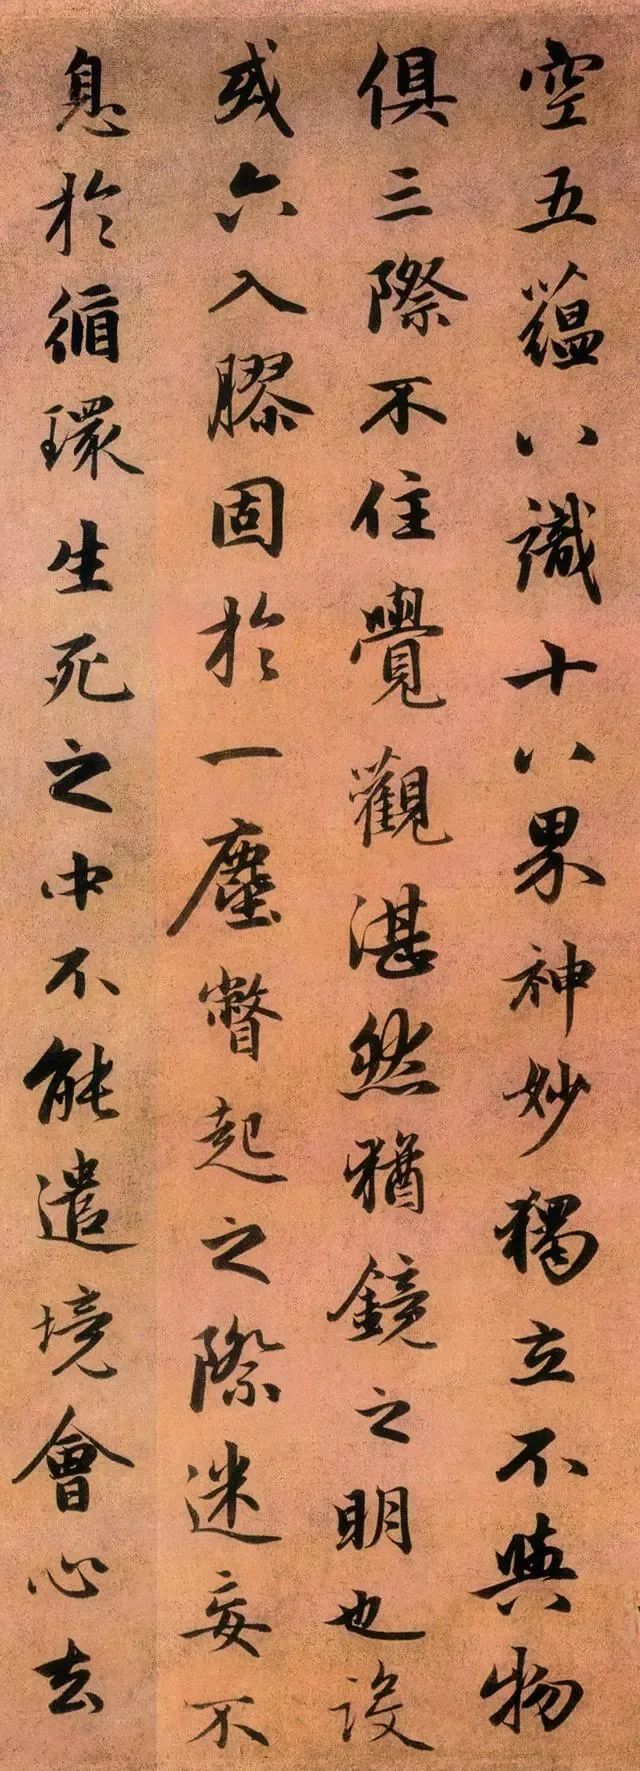 空五蘊八識十八界神妙獨立不與物
俱三際不住覺觀湛然猶鏡之明也設
或六入膠固於一塵瞥起之際迷妄不
息於循環生死之中不能遣境會心去